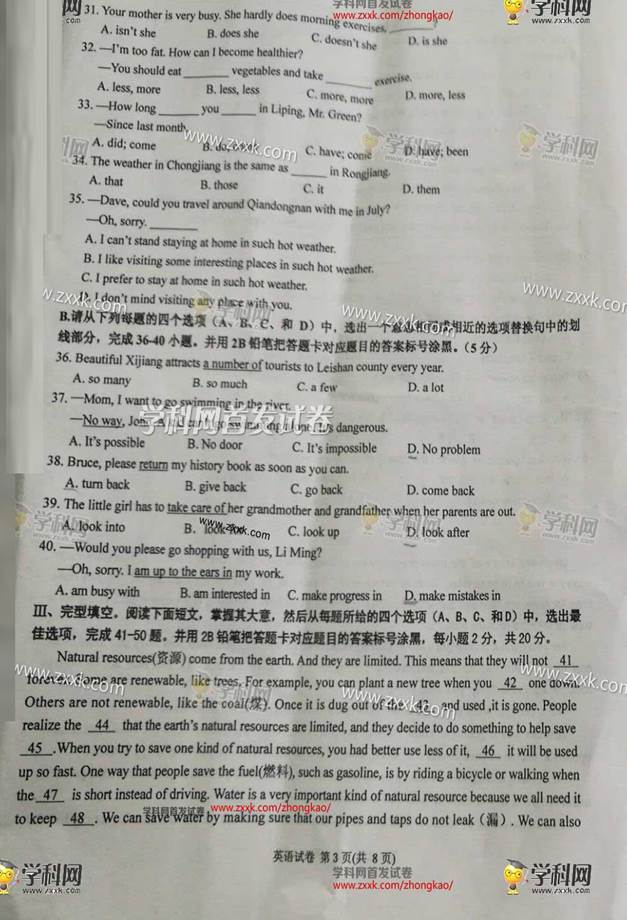 学科网首发试卷
www.zxxk.com/zhongkao/
31. Your mother is very busy. She hardly does morning exercises, ________?
A. isn't she B. does she C. doesn't she D. is she
32. —I'm too fat. How can I become healthier?
—You should eat ________ vegetables and take ________ exercise.
A. less, more B. less, less C. more, more D. more, less
33. —How long ________ you ________ in Liping, Mr. Green?
—Since last month.
A. did; come B. C. have; come D. have; been
34. The weather in Chongjiang is the same as ________ in Rongjiang.
A. that B. those C. it D. them
35. —Dave, could you travel around Qiandongnan with me in July?
—Oh, sorry. ________
A. I can't stand staying at home in such hot weather.
B. I like visiting some interesting places in such hot weather.
C. I prefer to stay at home in such hot weather.
D. I don't mind visiting any place with you.
B.请从下列每题的四个选项(A、B、C、和 D)中,选出一个意思相同或相近的选项替换句中的划
线部分,完成36-40小题。并用2B铅笔把答题卡对应题目的答案标号涂黑。(5分)
36. Beautiful Xijiang attracts a number of tourists to Leishan county every year.
A. so many B. so much C. a few D. a lot
37. —Mom, I want to go swimming in the river.
—No way, dangerous.
A. It's possible B. No door C. It's impossible D. No problem
38. Bruce, please return my history book as soon as you can.
A. turn back B. give back C. go back D. come back
39. The little girl has to take care of her grandmother and grandfather when her parents are out.
A. look into B. look C. look up D. look after
40. —Would you please go shopping with us, Li Ming?
—Oh, sorry. I am up to the ears in my work.
A. am busy with B. am interested in C. make progress in D. make mistakes in
III、完型填空。阅读下面短文,掌握其大意,然后从每题所给的四个选项(A、B、C、和D)中,选出最
佳选项,完成41-50题。并用2B铅笔把答题卡对应题目的答案标号涂黑,每小题2分,共20分。
Natural resources(资源) come from the earth. And they are limited. This means that they will not 41
forever. Some are renewable, like trees. For example, you can plant a new tree when you 42 one down.
Others are not renewable, like the coal(煤). Once it is dug out of the 43 and used ,it is gone. People
realize the 44 that the earth's natural resources are limited, and they decide to do something to help save
45 .When you try to save one kind of natural resources, you had better use less of it, 46 it will be used
up so fast. One way that people save the fuel(燃料), such as gasoline, is by riding a bicycle or walking when
the 47 is short instead of driving. Water is a very important kind of natural resource because we all need it
to keep 48 . We can save water by making sure that our pipes and taps do not leak(漏). We can also
英语试卷 第3页(共 8 页)
学科网首发试卷
www.zxxk.com/zhongkao/